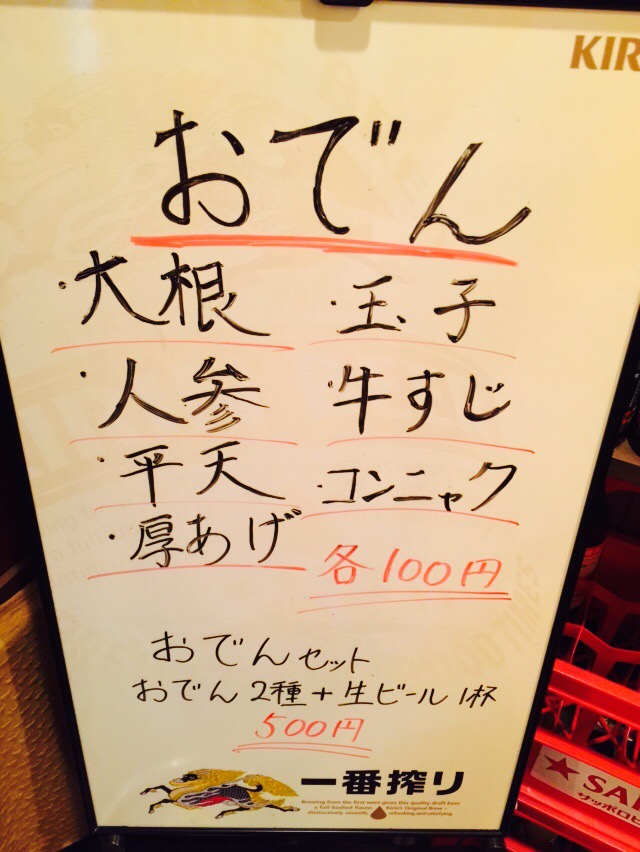 KIR
おでん
・大根 ・玉子
・人参 ・牛すじ
・平天 ・コンニャク
・厚あげ 各100円
おでんセット
おでん2種+生ビール1杯
500円
一番搾り
Brewing from the first wort gives this quality draft beer
a full-bodied flavor. Kirin's Original Brew –
distinctively smooth, refreshing and satisfying.
★ SA
サッポロビ